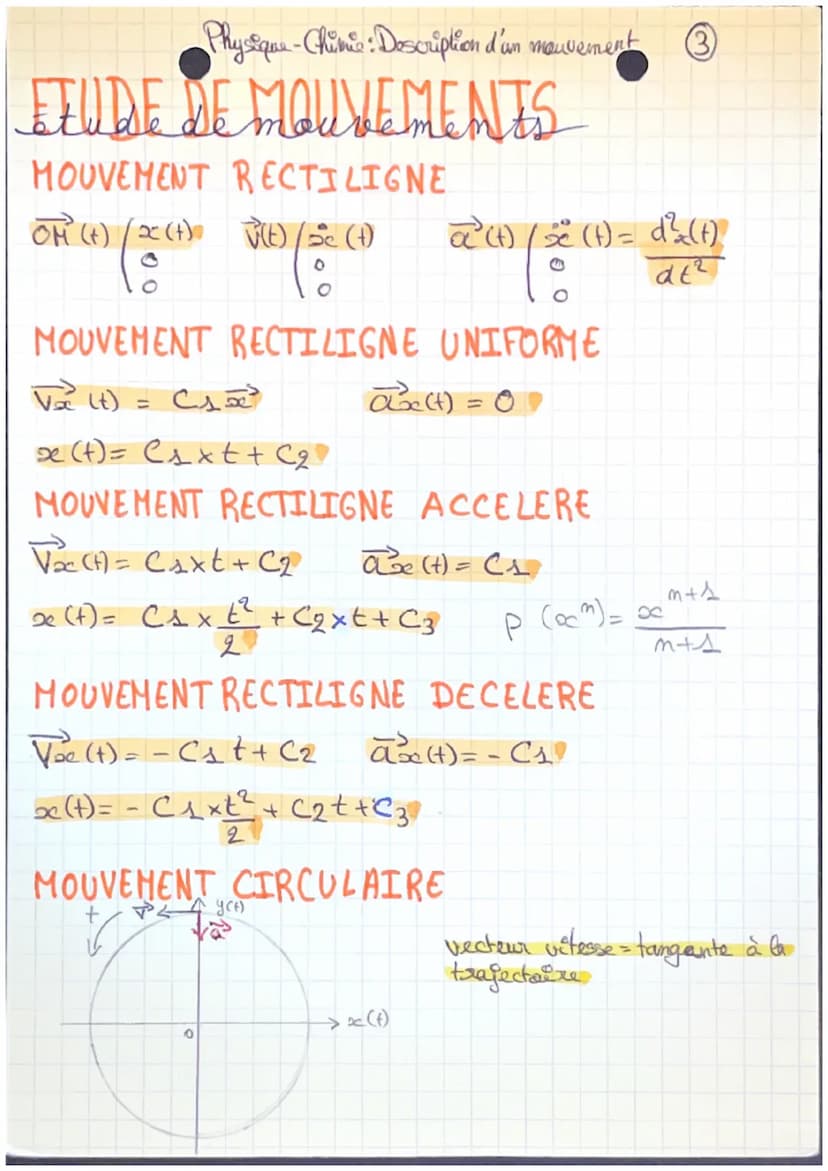 Physique-Chimie: Description d'un mouvement ③
ETUDE DE MOUVEMENTS
Etude de mouvements
MOUVEMENT RECTILIGNE
OM⃗ (t) ( x(t) 0 0 V⃗(t) ( ẋ(t) 0 0 a⃗(t) ( ẍ(t) = d²x(t)/dt² 0 0
MOUVEMENT RECTILIGNE UNIFORME
Vx⃗ (t) = C1 x⃗ ax⃗(t) = 0
x(t) = C1 x t + C2
MOUVEMENT RECTILIGNE ACCELERE
Vx⃗(t) = C1xt + C2 ax⃗(t) = C1
x(t) = C1 x t²/2 + C2 x t + C3 P (x^n) = x^(n+1)/(n+1)
MOUVEMENT RECTILIGNE DECELERE
Vx⃗(t) = - C1 t + C2 ax⃗(t) = - C1
x(t) = - C1 x t²/2 + C2 t + C3
MOUVEMENT CIRCULAIRE
+ v⃗ y(t)
a⃗
vecteur vitesse = tangente à la
trajectoire
0 x(t)